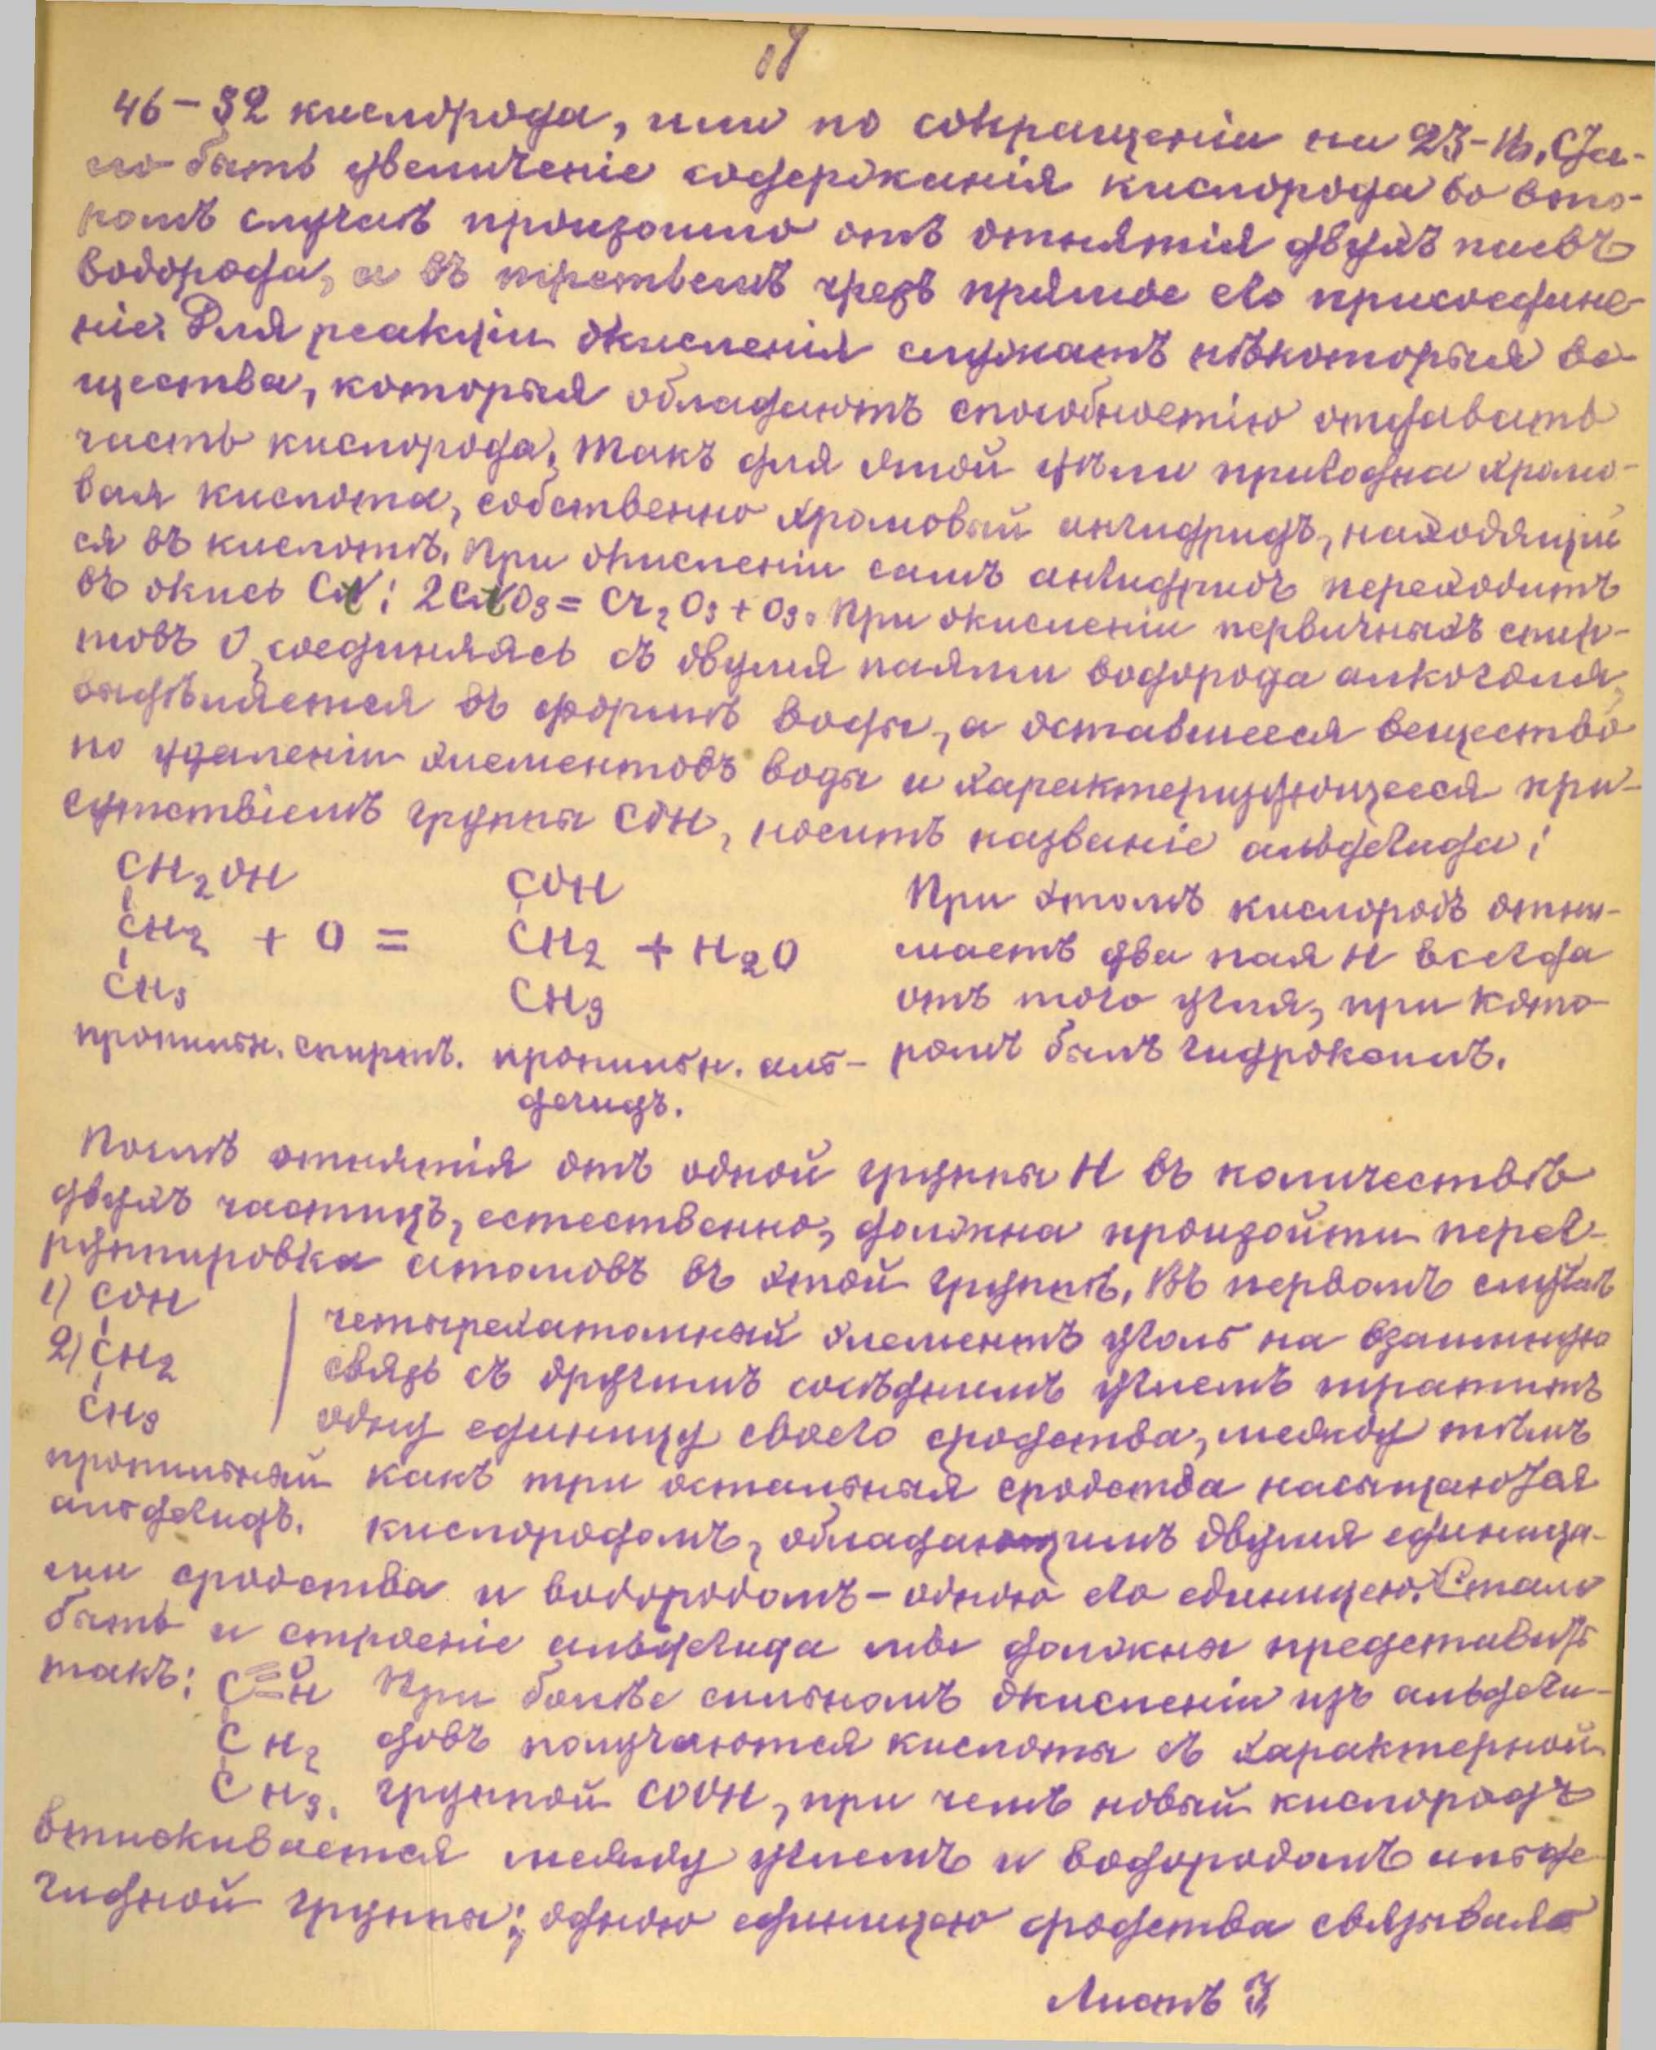 46–32 кислорода, или по сокращеніи на 23–16. Ста-
ло быть увеличеніе содержанія кислорода во вто-
ромъ случаѣ произошло отъ отнятія двухъ паевъ
водорода, а въ третьемъ чрезъ прямое его присоедине-
ніе. Для реакціи окисленія служатъ нѣкоторыя ве-
щества, которыя обладаютъ способностію отдавать
часть кислорода. Такъ для этой цѣли пригодна хромо-
вая кислота, собственно хромовый ангидридъ, находящій
ся въ кислотѣ. При окисленіи самъ ангидридъ переходитъ
въ окись Cr: 2CrO3 = Cr2O3 + O3. При окисленіи первичныхъ спир-
товъ O, соединяясь съ двумя паями водорода алкоголя,
выдѣляется въ формѣ воды, а оставшееся вещество
по удаленіи элементовъ воды и характеризующееся при-
сутствіемъ группы COH, носитъ названіе альдегида:
CH2OH COH При этомъ кислородъ отни-
CH2 + O = CH2 + H2O маетъ два пая H всегда
CH3 CH3 отъ того угля, при кото-
пропильн. спиртъ. пропильн. аль- ромъ былъ гидроксилъ.
дегидъ.
Послѣ отнятія отъ одной группы H въ количествѣ
двухъ частицъ, естественно, должна произойти перег-
руппировка атомовъ въ этой группѣ. Въ первомъ случаѣ
1) COH четырехатомный элементъ уголь на взаимную
2) CH2 связь съ другимъ сосѣднимъ углемъ тратитъ
CH3 одну единицу своего сродства, между тѣмъ
пропильный какъ три остальныя сродства насыщаются
альдегидъ. кислородомъ, обладающимъ двумя единица-
ми сродства и водородомъ – одною его единицею. Стало
быть и строеніе альдегида мы должны представить
такъ: C≡OH При болѣе сильномъ окисленіи изъ альдеги-
CH2 довъ получаются кислоты съ характерной
CH3. группой COOH, при чемъ новый кислородъ
втискивается между углемъ и водородомъ альде-
гидной группы; одною единицею сродства связывая
Листъ 3